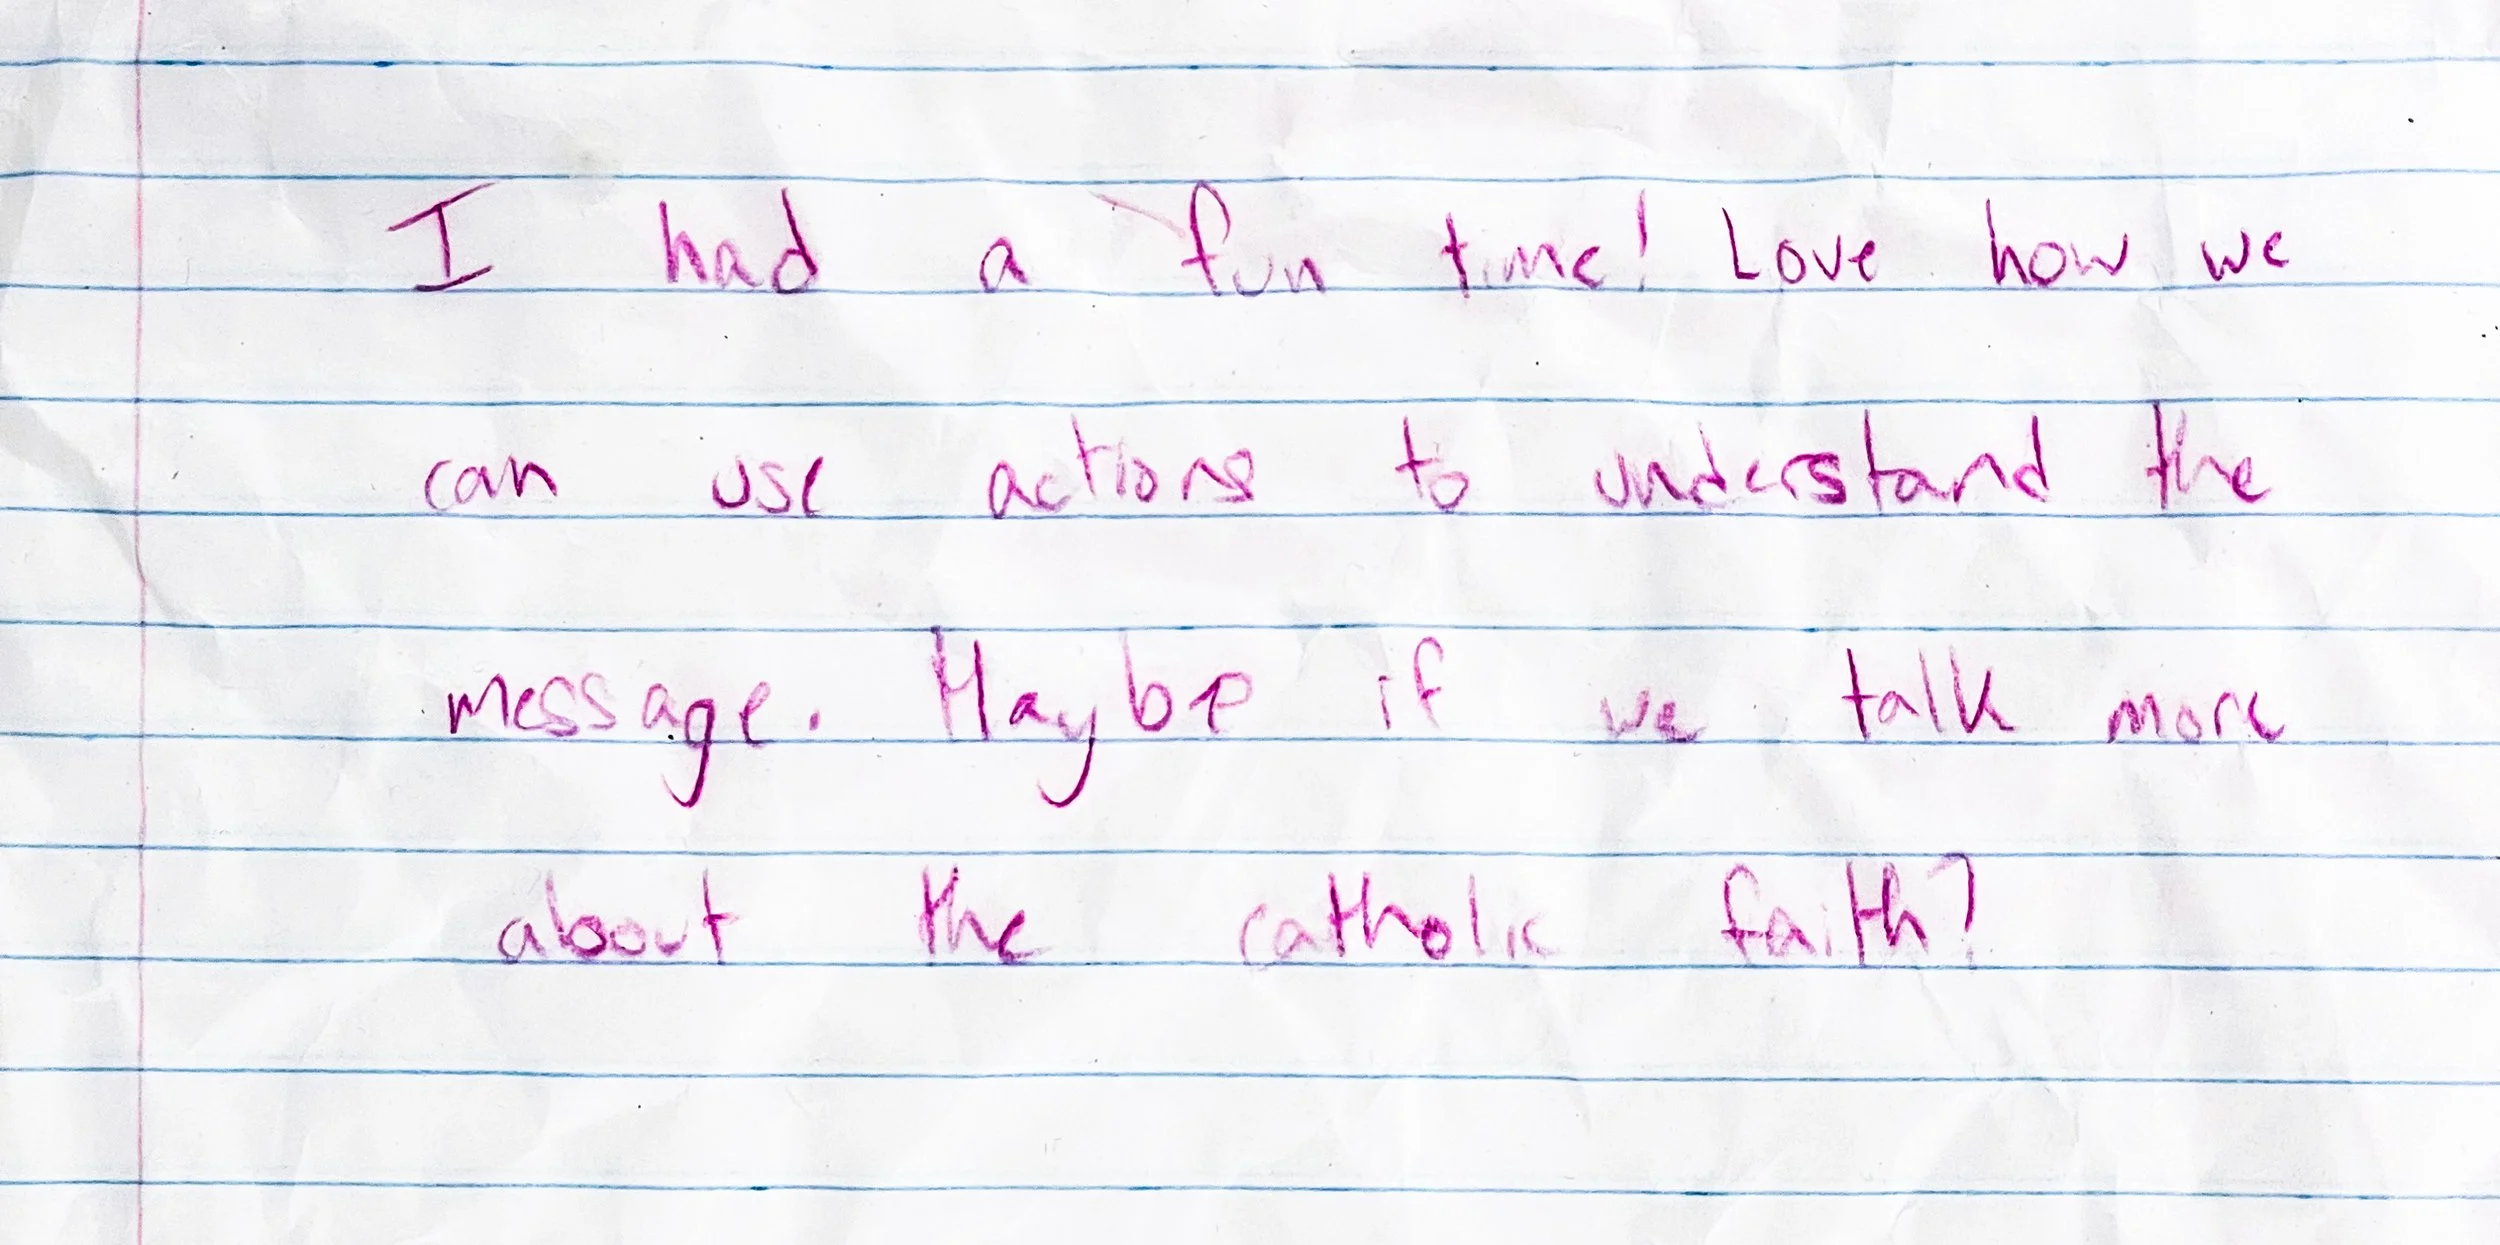 I had a fun time! Love how we
can use actions to understand the
message. Maybe if we talk more
about the catholic faith?